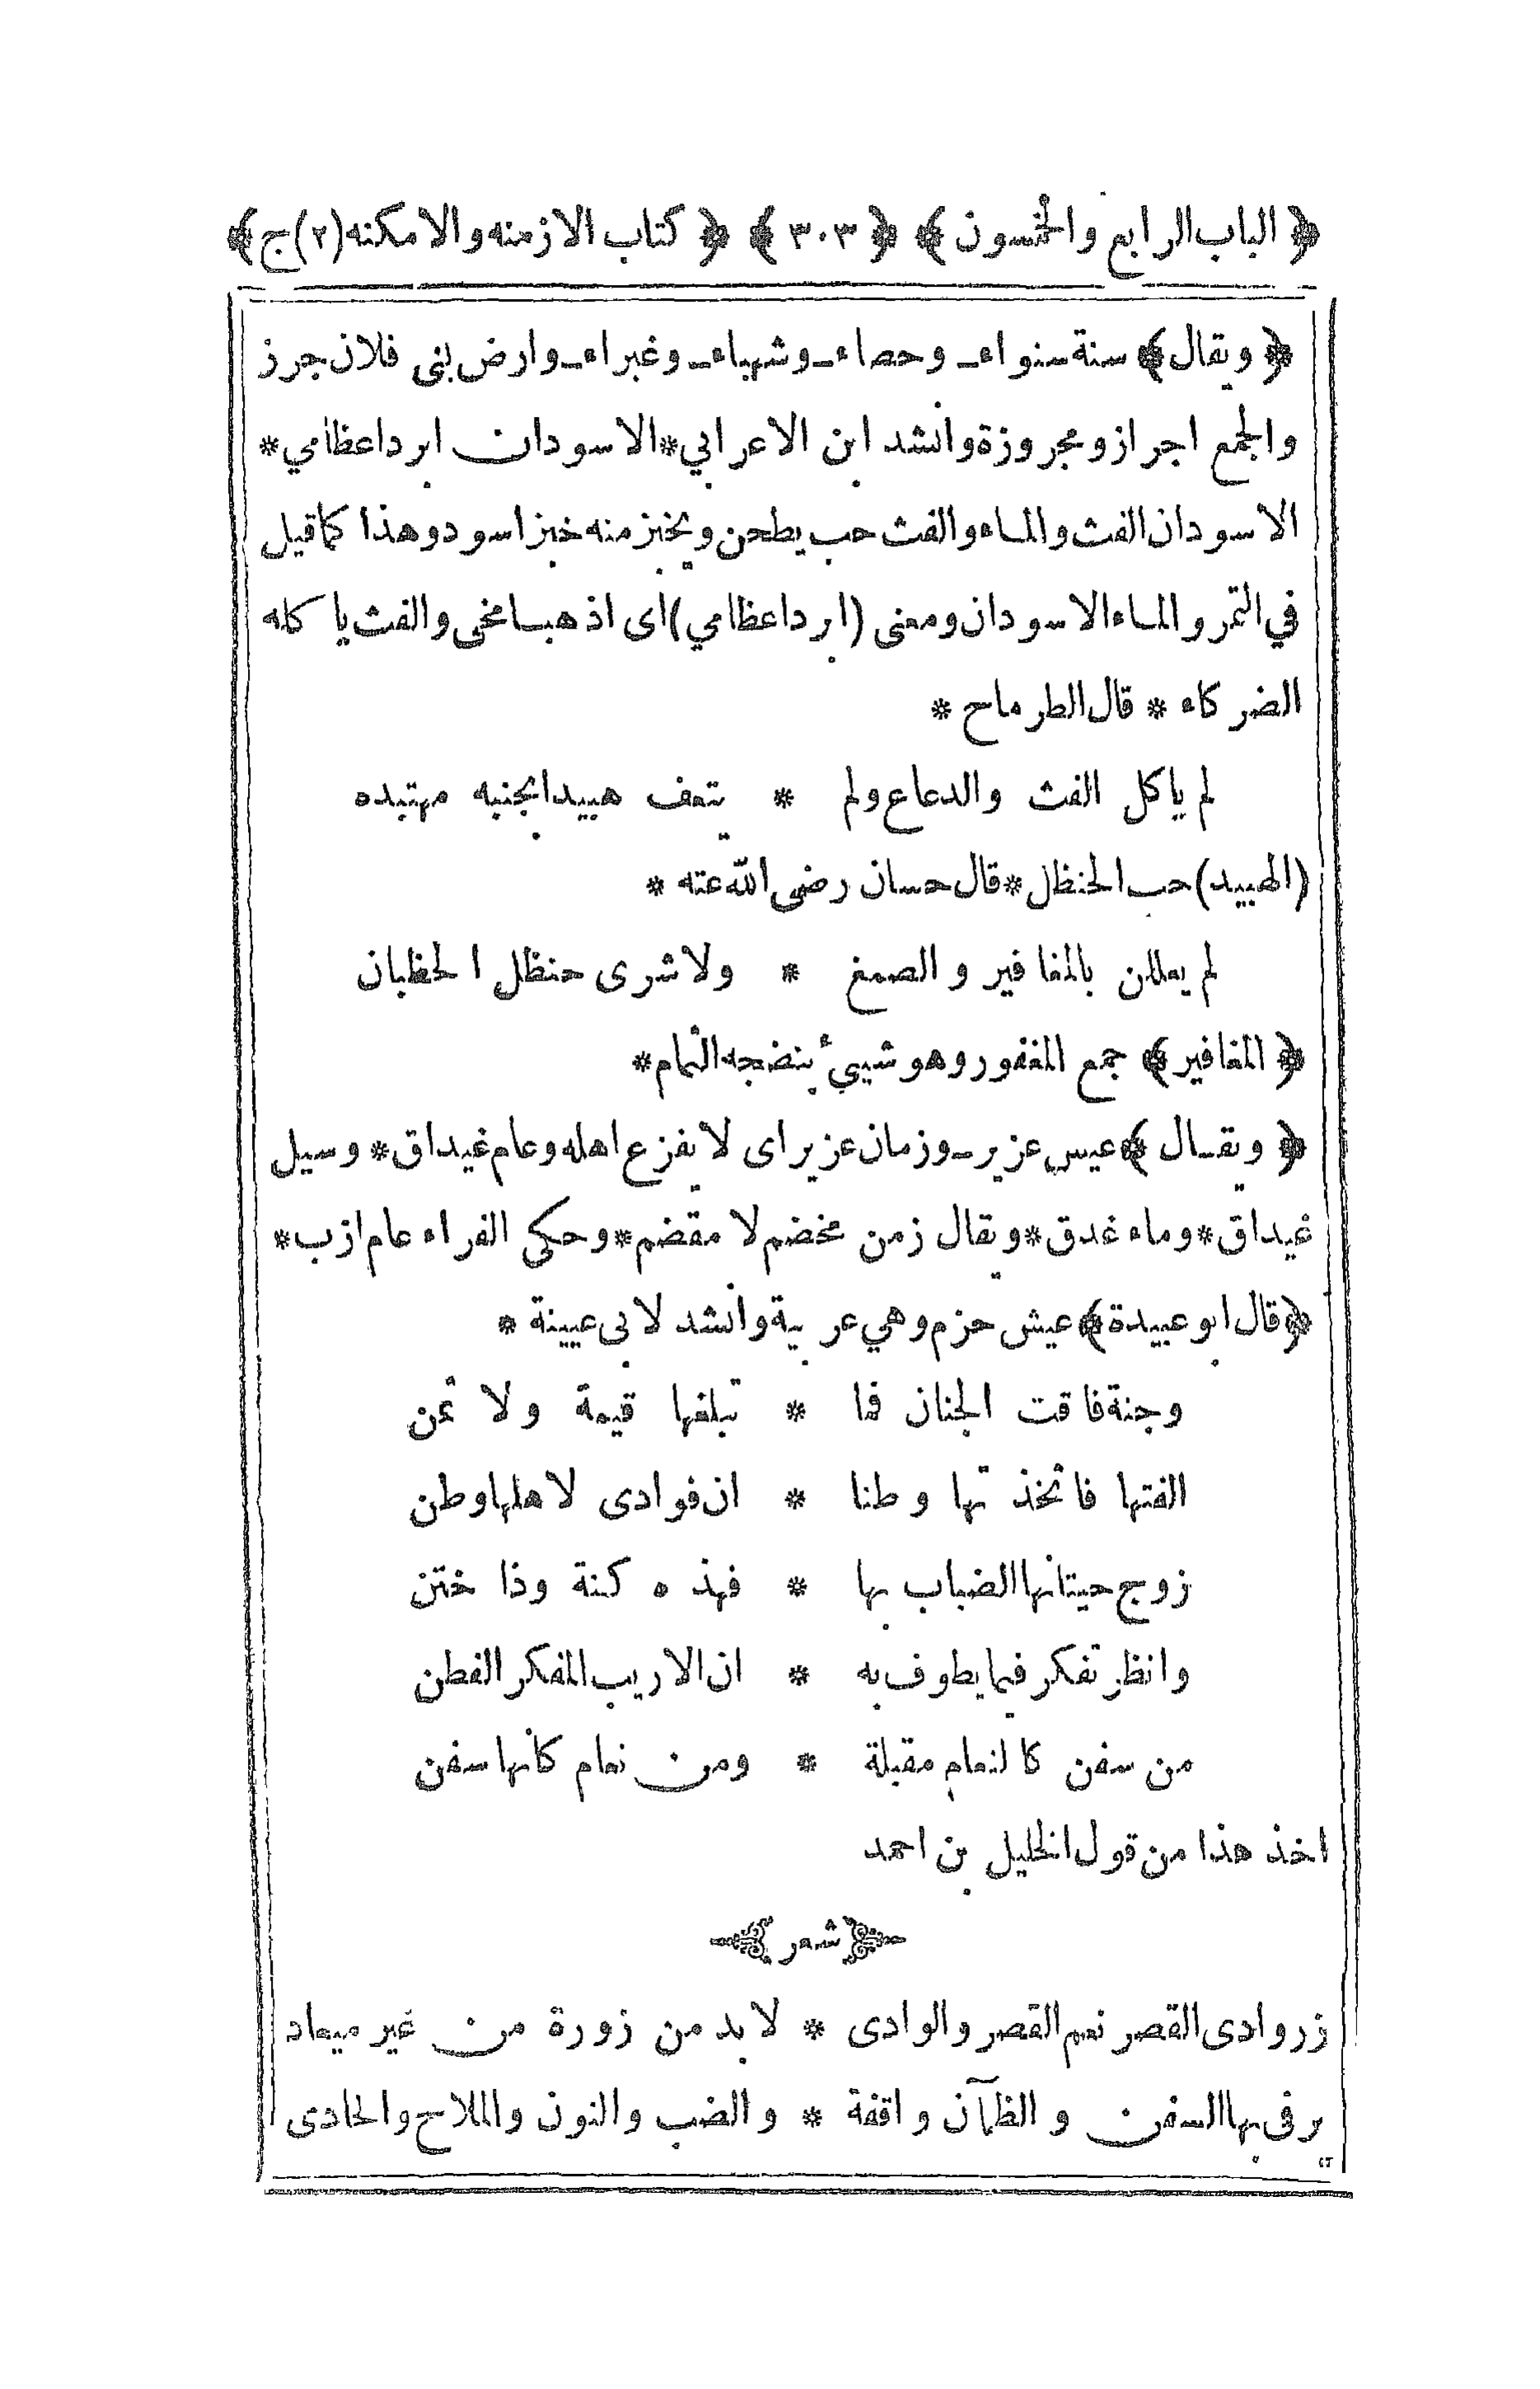 ﴿ الباب الرابع والخمسون ﴾ ﴿ ٣٠٣ ﴾ ﴿ كتاب الازمنه والامكنه (٢) ج ﴾
﴿ ويقال ﴾ سنة سنواء ـ وحصاء ـ وشهباء ـ وغبراء ـ وارض بنى فلان جرز
والجمع اجراز ومجروزة وانشد ابن الاعرابي * الاسودان ابردا عظامي *
الاسودان الفث والماء والفث حب يطحن ويخبز منه خبز اسود وهذا كما قيل
في التمر والماء الاسودان ومعنى (ابردا عظامي) اى اذهبا مخى والفث ياكله
الضركاء * قال الطرماح *
لم ياكل الفث والدعاع ولم * يتعف هبيدا يجنبه مهتبده
(الهبيد) حب الحنظل * قال حسان رضى الله عته *
لم يعللن بالمغافير والصمغ * ولا شرى حنظل الحظبان
﴿ المغافير ﴾ جمع المغفور وهو شيئ ينضجه الثمام *
﴿ ويقال ﴾ عيس عزير ـ وزمان عزير اى لا يفزع اهله وعام غيداق * وسيل
غيداق * وماء غدق * ويقال زمن مخضم لا مقضم * وحكى الفراء عام ازب *
﴿ قال ابو عبيدة ﴾ عيش حزم وهي عربية وانشد لابى عيينة *
وجنة فاقت الجنان فما * تبلغها قيمة ولا ثمن
الفتها فاتخذتها وطنا * ان فوادى لاهلها وطن
زوج حيتانها الضباب بها * فهذه كنة وذا ختن
وانظر تفكر فيما يطوف به * ان الاريب المفكر الفطن
من سفن كالنعام مقبلة * ومن نعام كأنها سفن
اخذ هذا من قول الخليل بن احمد
﴿ شعر ﴾
زر وادى القصر نعم القصر والوادى * لابد من زورة من غير ميعاد
يرقى بها السفن والظلمآن واقفة * والضب والنون والملاح والحادى